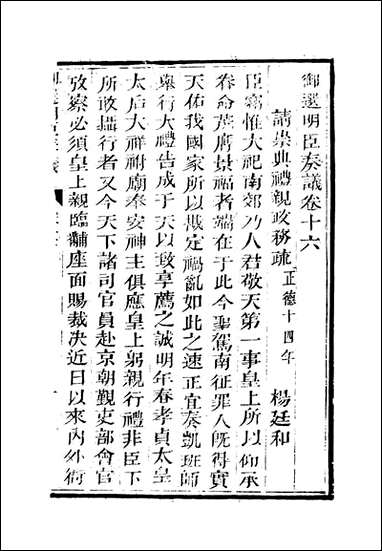 御選明臣奏議卷十六
請崇典禮親政務疏 正德十四年 楊廷和
臣竊惟大祀南郊乃人君敬天第一事皇上所以仰承
眷命茂膺景福者端在于此今聖駕南征罪人旣得實
天佑我國家所以戡定禍亂如此之速正宜奏凱班師
舉行大禮告成于天以致享薦之誠明年春孝貞太皇
太后大祥祔廟奉安神主俱應皇上躬親行禮非臣下
所敢攝行者又今天下諸司官員赴京朝覲吏部會官
攷察必須皇上親臨黼座面賜裁決近日以來內外衙